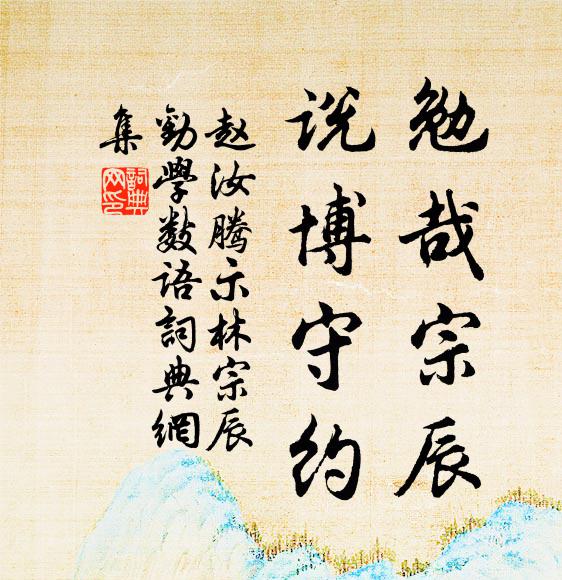 勉哉宗辰
说博守约
赵汝腾示林宗辰
劝学数语詞典網
集
詞典
网印